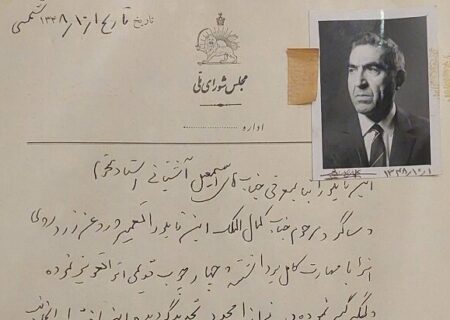 تاریخ ۱۳۴۸/۱۰/۱ شمسی
مجلس شورای ملی
اداره
این تابلو را بنا بمعرفی جناب آقای اسمعیل آشتیانی استاد محترم
و شاگرد مرحوم جناب کمال الملک این تابلو را تعمیر و روغن زرد روی
آنرا با مهارت کامل برداشته و چهار چوب قدیمی آنرا تعویض نموده
۱۳۴۸/۱۰/۱